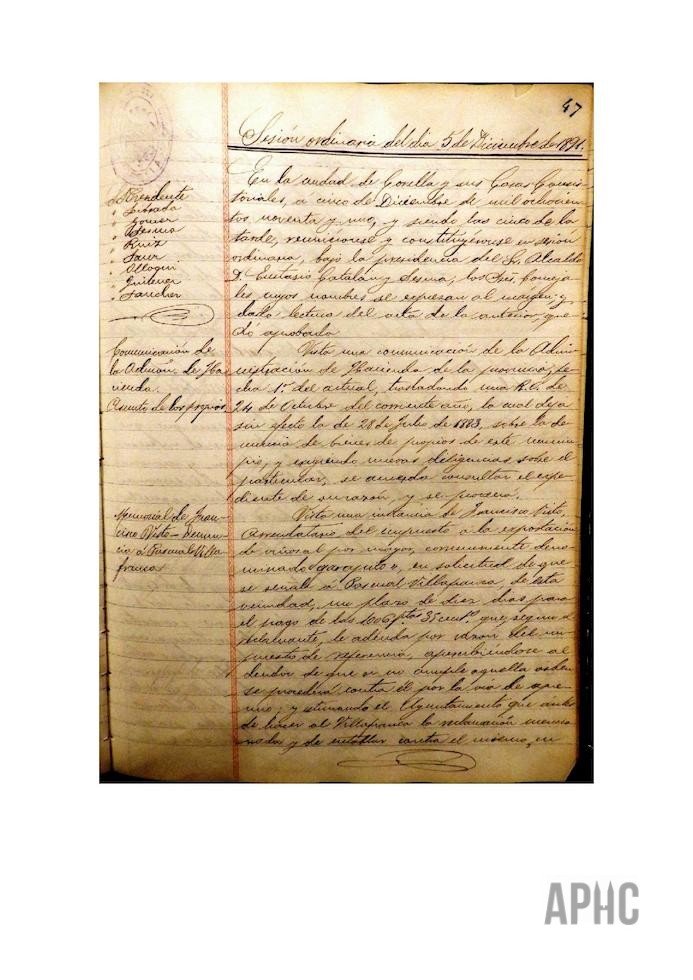 47
Sesión ordinaria del dia 5 de Diciembre de 1891.
En la ciudad de Corella y sus Casas Consis-
toriales, a cinco de Diciembre de mil ochocien-
tos noventa y uno, y siendo las cinco de la
tarde, reuniéronse y constituyéronse en sesión
ordinaria, bajo la presidencia del Sr. Alcalde
D. Eustasio Catalan y Sesma, los Sres. Conceja-
les cuyos nombres se expresan al margen y
dada lectura del acta de la anterior que-
dó aprobada.
Sr. Presidente
" Gomez
" Sesma
" Ruiz
" Sanz
" Alloqui
" Sanchez
Comunicación de
la Admon. de Ha-
cienda.
Asunto de los propios
Vista una comunicación de la Admi-
nistración de Hacienda de la provincia, fe-
cha 1º del actual, trasladando una R.O. de
24 de Octubre del corriente año, la cual deja
sin efecto la de 28 de Julio de 1883, sobre la de-
nuncia de bienes de propios de este munici-
pio, y exigiendo nuevas diligencias sobre el
particular, se acuerda consultar el expe-
diente de su razón, y se procera.
Memorial de Fran-
cisco Visto - Denun-
cia á Pascual Villa
franca
Vista una instancia de Francisco Visto,
Arrendatario del impuesto a la exportación
de vinos al por mayor, comunmente deno-
minado "garapito", en solicitud de que
se señale á Pascual Villafranca de esta
vecindad, un plazo de diez dias para
el pago de las 1606 ptas 35 cent. que, segun el
reclamante, le adeuda por razon del im-
puesto de referencia, apercibiendose al
deudor de que si no cumple aquella orden
se procederá contra él por la via de apre-
mio; y estimando el Ayuntamiento que antes
de hacer al Villafranca la reclamación mencio-
nada y de entablar contra el mismo, en
APHC